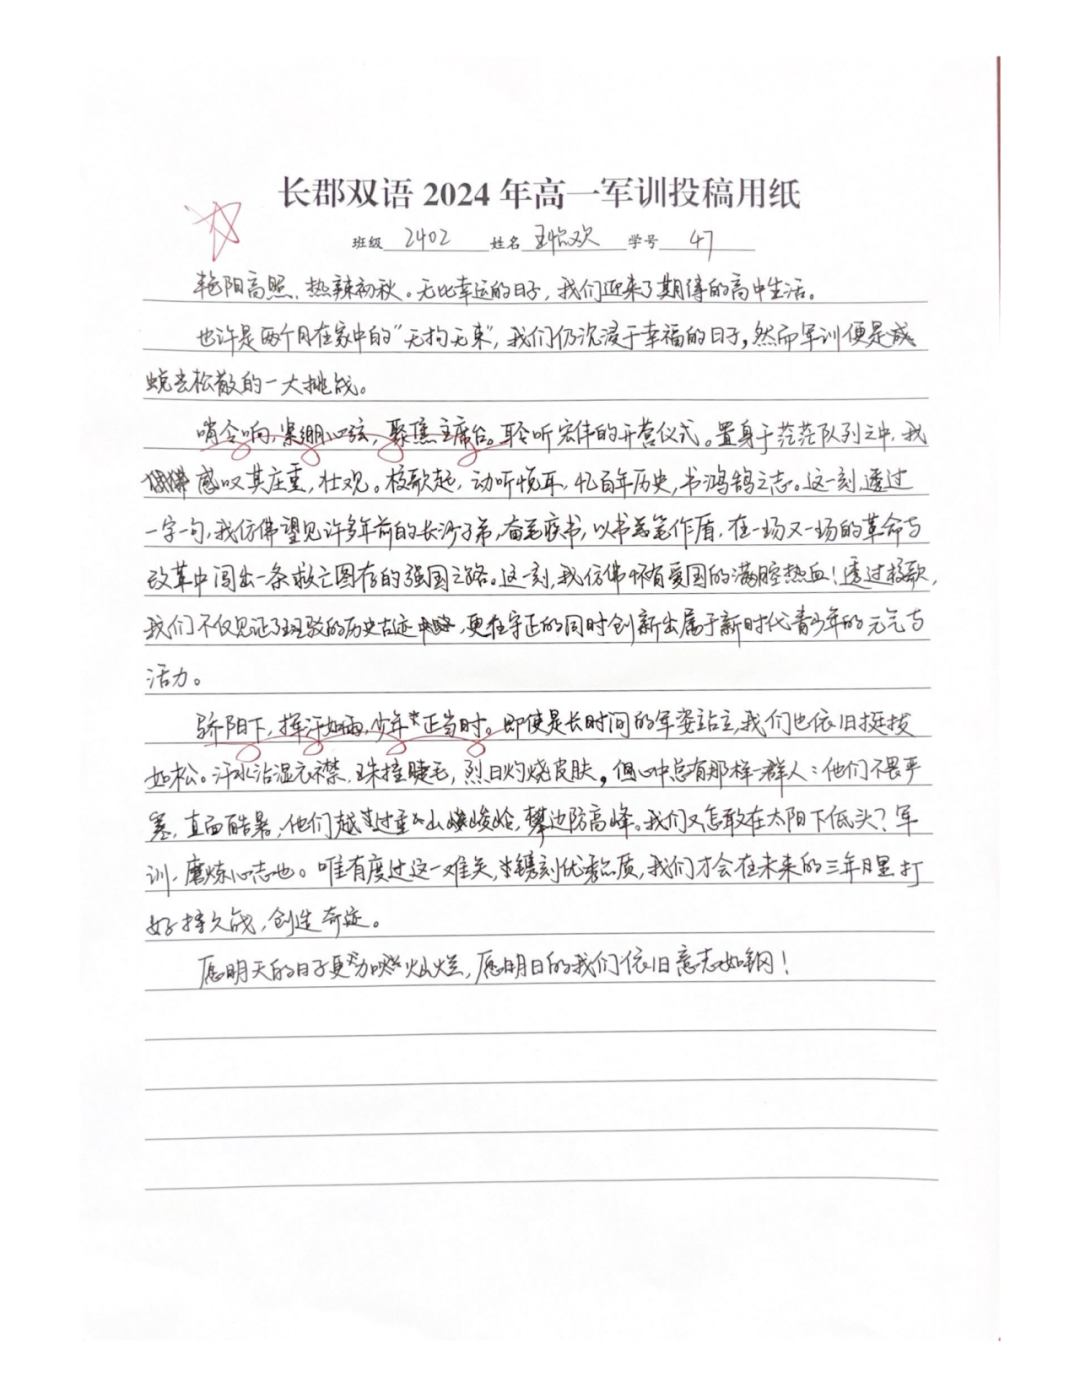 长郡双语 2024 年高一军训投稿用纸
班级 2402 姓名 王怡欢 学号 47
艳阳高照，热辣初秋。无比幸运的日子，我们迎来了期待的高中生活。
也许是两个月在家中的“无拘无束”，我们仍沉浸于幸福的日子，然而军训便是
蜕去松散的一大挑战。
哨令响，紧绷心弦，聚焦主席台。聆听宏伟的开营仪式。置身于茫茫队列之中，我
感叹其庄重，壮观。校歌起，动听悦耳，忆百年历史，书鸿鹄之志。这一刻，透过
一字一句，我仿佛望见许多年前的长沙子弟，奋笔疾书，以书为笔作盾，在一场又一场的革命与
改革中闯出一条救亡图存的强国之路。这一刻，我仿佛怀有爱国的满腔热血！透过校歌，
我们不仅见证了斑驳的历史古迹，更在守正的同时创新出属于新时代青少年的元气与
活力。
骄阳下，挥汗如雨，少年正当时。即使是长时间的军姿站立，我们也依旧挺拔
如松。汗水沾湿衣襟，珠挂睫毛，烈日灼烧皮肤，但心中总有那样一群人：他们不畏严
寒，直面酷暑，他们越过重山峻岭，攀边防高峰。我们又怎敢在太阳下低头？军
训，磨炼心志也。唯有度过这一难关，镌刻优秀品质，我们才会在未来的三年月里打
好持久战，创造奇迹。
愿明天的日子更加灿烂，愿明日的我们依旧意志如钢！